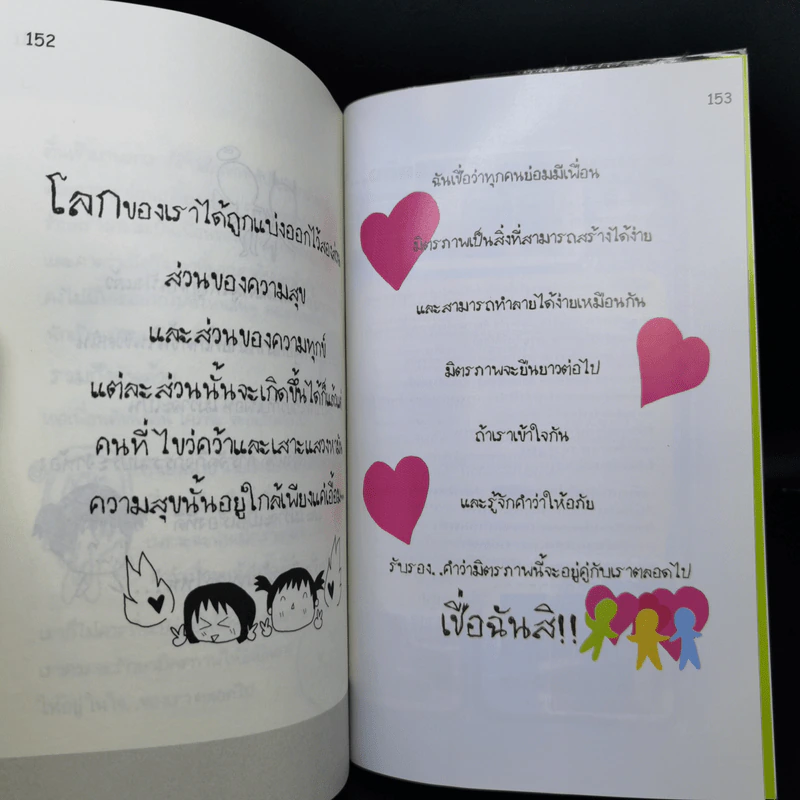 152
โลกของเราได้ถูกแบ่งออกไว้สองส่วน
ส่วนของความสุข
และส่วนของความทุกข์
แต่ละส่วนนั้นจะเกิดขึ้นได้ก็แต่
คนที่ไขว่คว้าและเสาะแสวงหา
ความสุขนั้นอยู่ใกล้เพียงแค่เอื้อม
153
ฉันเชื่อว่าทุกคนย่อมมีเพื่อน
มิตรภาพเป็นสิ่งที่สามารถสร้างได้ง่าย
และสามารถทำลายได้ง่ายเหมือนกัน
มิตรภาพจะยืนยาวต่อไป
ถ้าเราเข้าใจกัน
และรู้จักคำว่าให้อภัย
รับรอง..คำว่ามิตรภาพนี้จะอยู่คู่กับเราตลอดไป
เชื่อฉันสิ!!